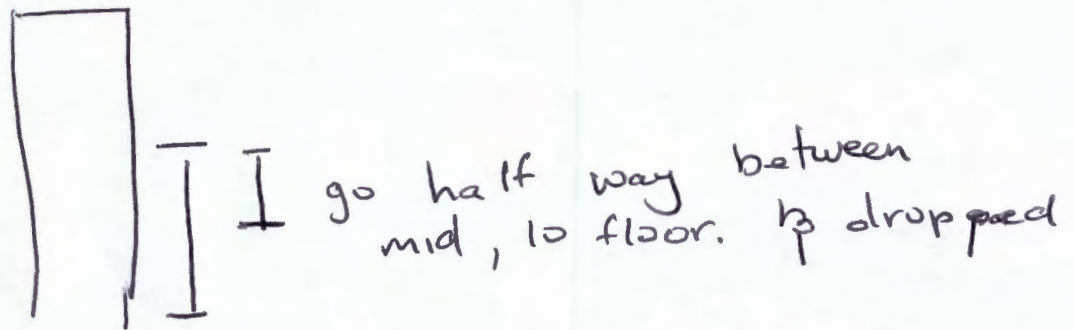 go half way between
mid, lo floor. & dropped